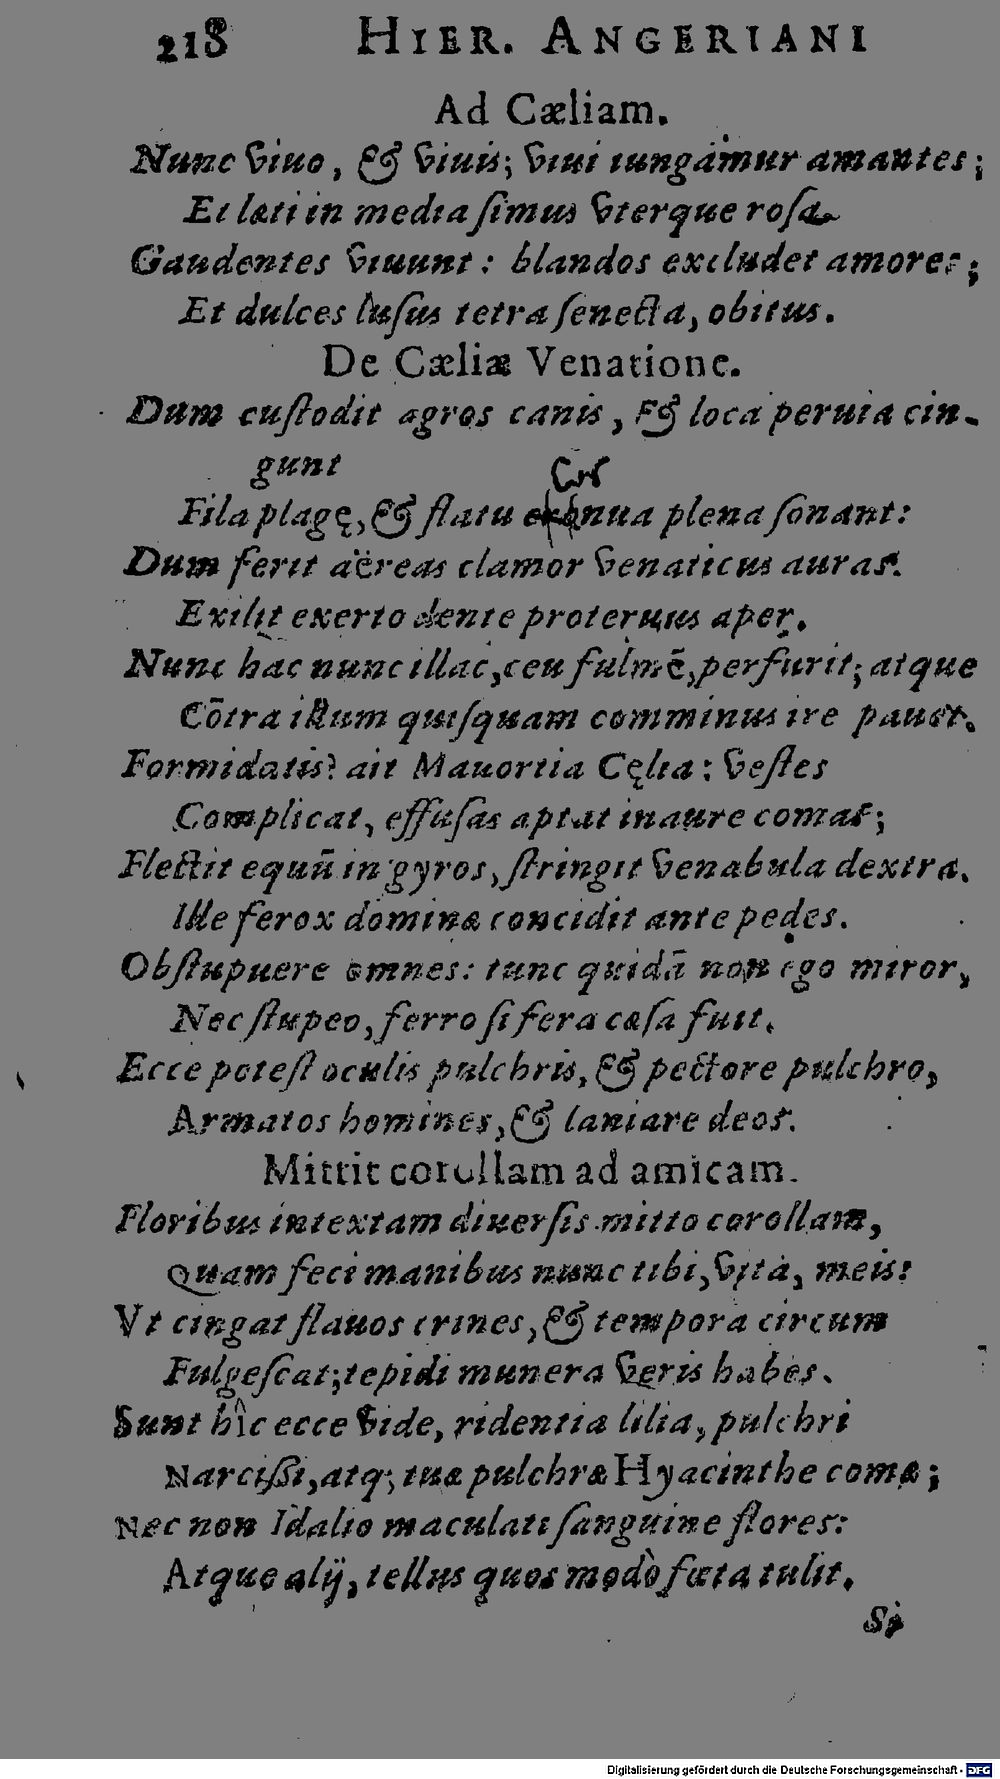 218 HIER. ANGERIANI
Ad Cæliam.
Nunc viuo, & viuis; viui iungamur amantes;
Et læti in media ſimus vterque roſa
Gaudentes viuunt: blandos excludet amores;
Et dulces luſus tetra ſenecta, obitus.
De Cæliæ Venatione.
Dum cuſtodit agros canis, & loca peruia cin-
gunt
Cor
Fila plagę, & flatu nua plena ſonant:
Dum ferit aëreas clamor venaticus auras.
Exilit exerto dente proteruus aper.
Nunc hac nunc illac, ceu fulmē, perfurit; atque
Cōtra illum quiſquam comminus ire pauet.
Formidatis? ait Mauortia Cęlia: veſtes
Complicat, effuſas aptat in aure comas;
Flectit equū in gyros, ſtringit venabula dextra.
Ille ferox dominæ concidit ante pedes.
Obſtupuere omnes: tunc quidā non ego miror,
Nec ſtupeo, ferro ſi fera cæſa fuit.
Ecce poteſt oculis pulchris, & pectore pulchro,
Armatos homines, & laniare deos.
Mittit corollam ad amicam.
Floribus intextam diuerſis mitto corollam,
Quam feci manibus nunc tibi, vita, meis:
Vt cingat flauos crines, & tempora circum
Fulgeſcat; tepidi munera veris habes.
Sunt hîc ecce vide, ridentia lilia, pulchri
Narciſſi, atq; tuæ pulchræ Hyacinthe comæ;
Nec non Idalio maculati ſanguine flores:
Atque alij, tellus quos modò fœta tulit.
Si
Digitalisierung gefördert durch die Deutsche Forschungsgemeinschaft - DFG